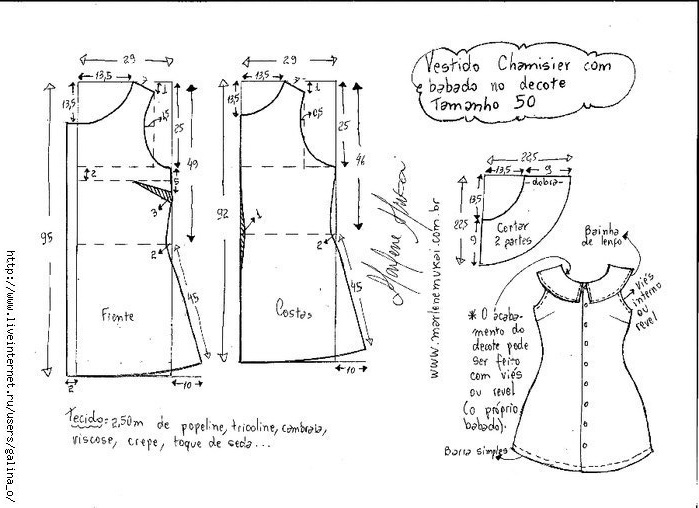 Vestido Chamisier com
babado no decote
Tamanho 50
29
13,5
1
13,5
1,5
25
49
2
5
3
2
95
45
Frente
2
10
29
13,5
1
13,5
0,5
25
46
92
1
2
45
Costas
10
Marlene Mukai
www.marlenemukai.com.br
22,5
13,5
9
dobra
13,5
22,5
9
Cortar
2 partes
Bainha
de lenço
viés
interno
ou
revel
* O acaba-
mento do
decote pode
ser feito
com viés
ou revel
(o próprio
babado).
Barra simples
Tecido: 2,50m de popeline, tricoline, cambraia,
viscose, crepe, toque de seda...
http://www.liveinternet.ru/users/galina_o/